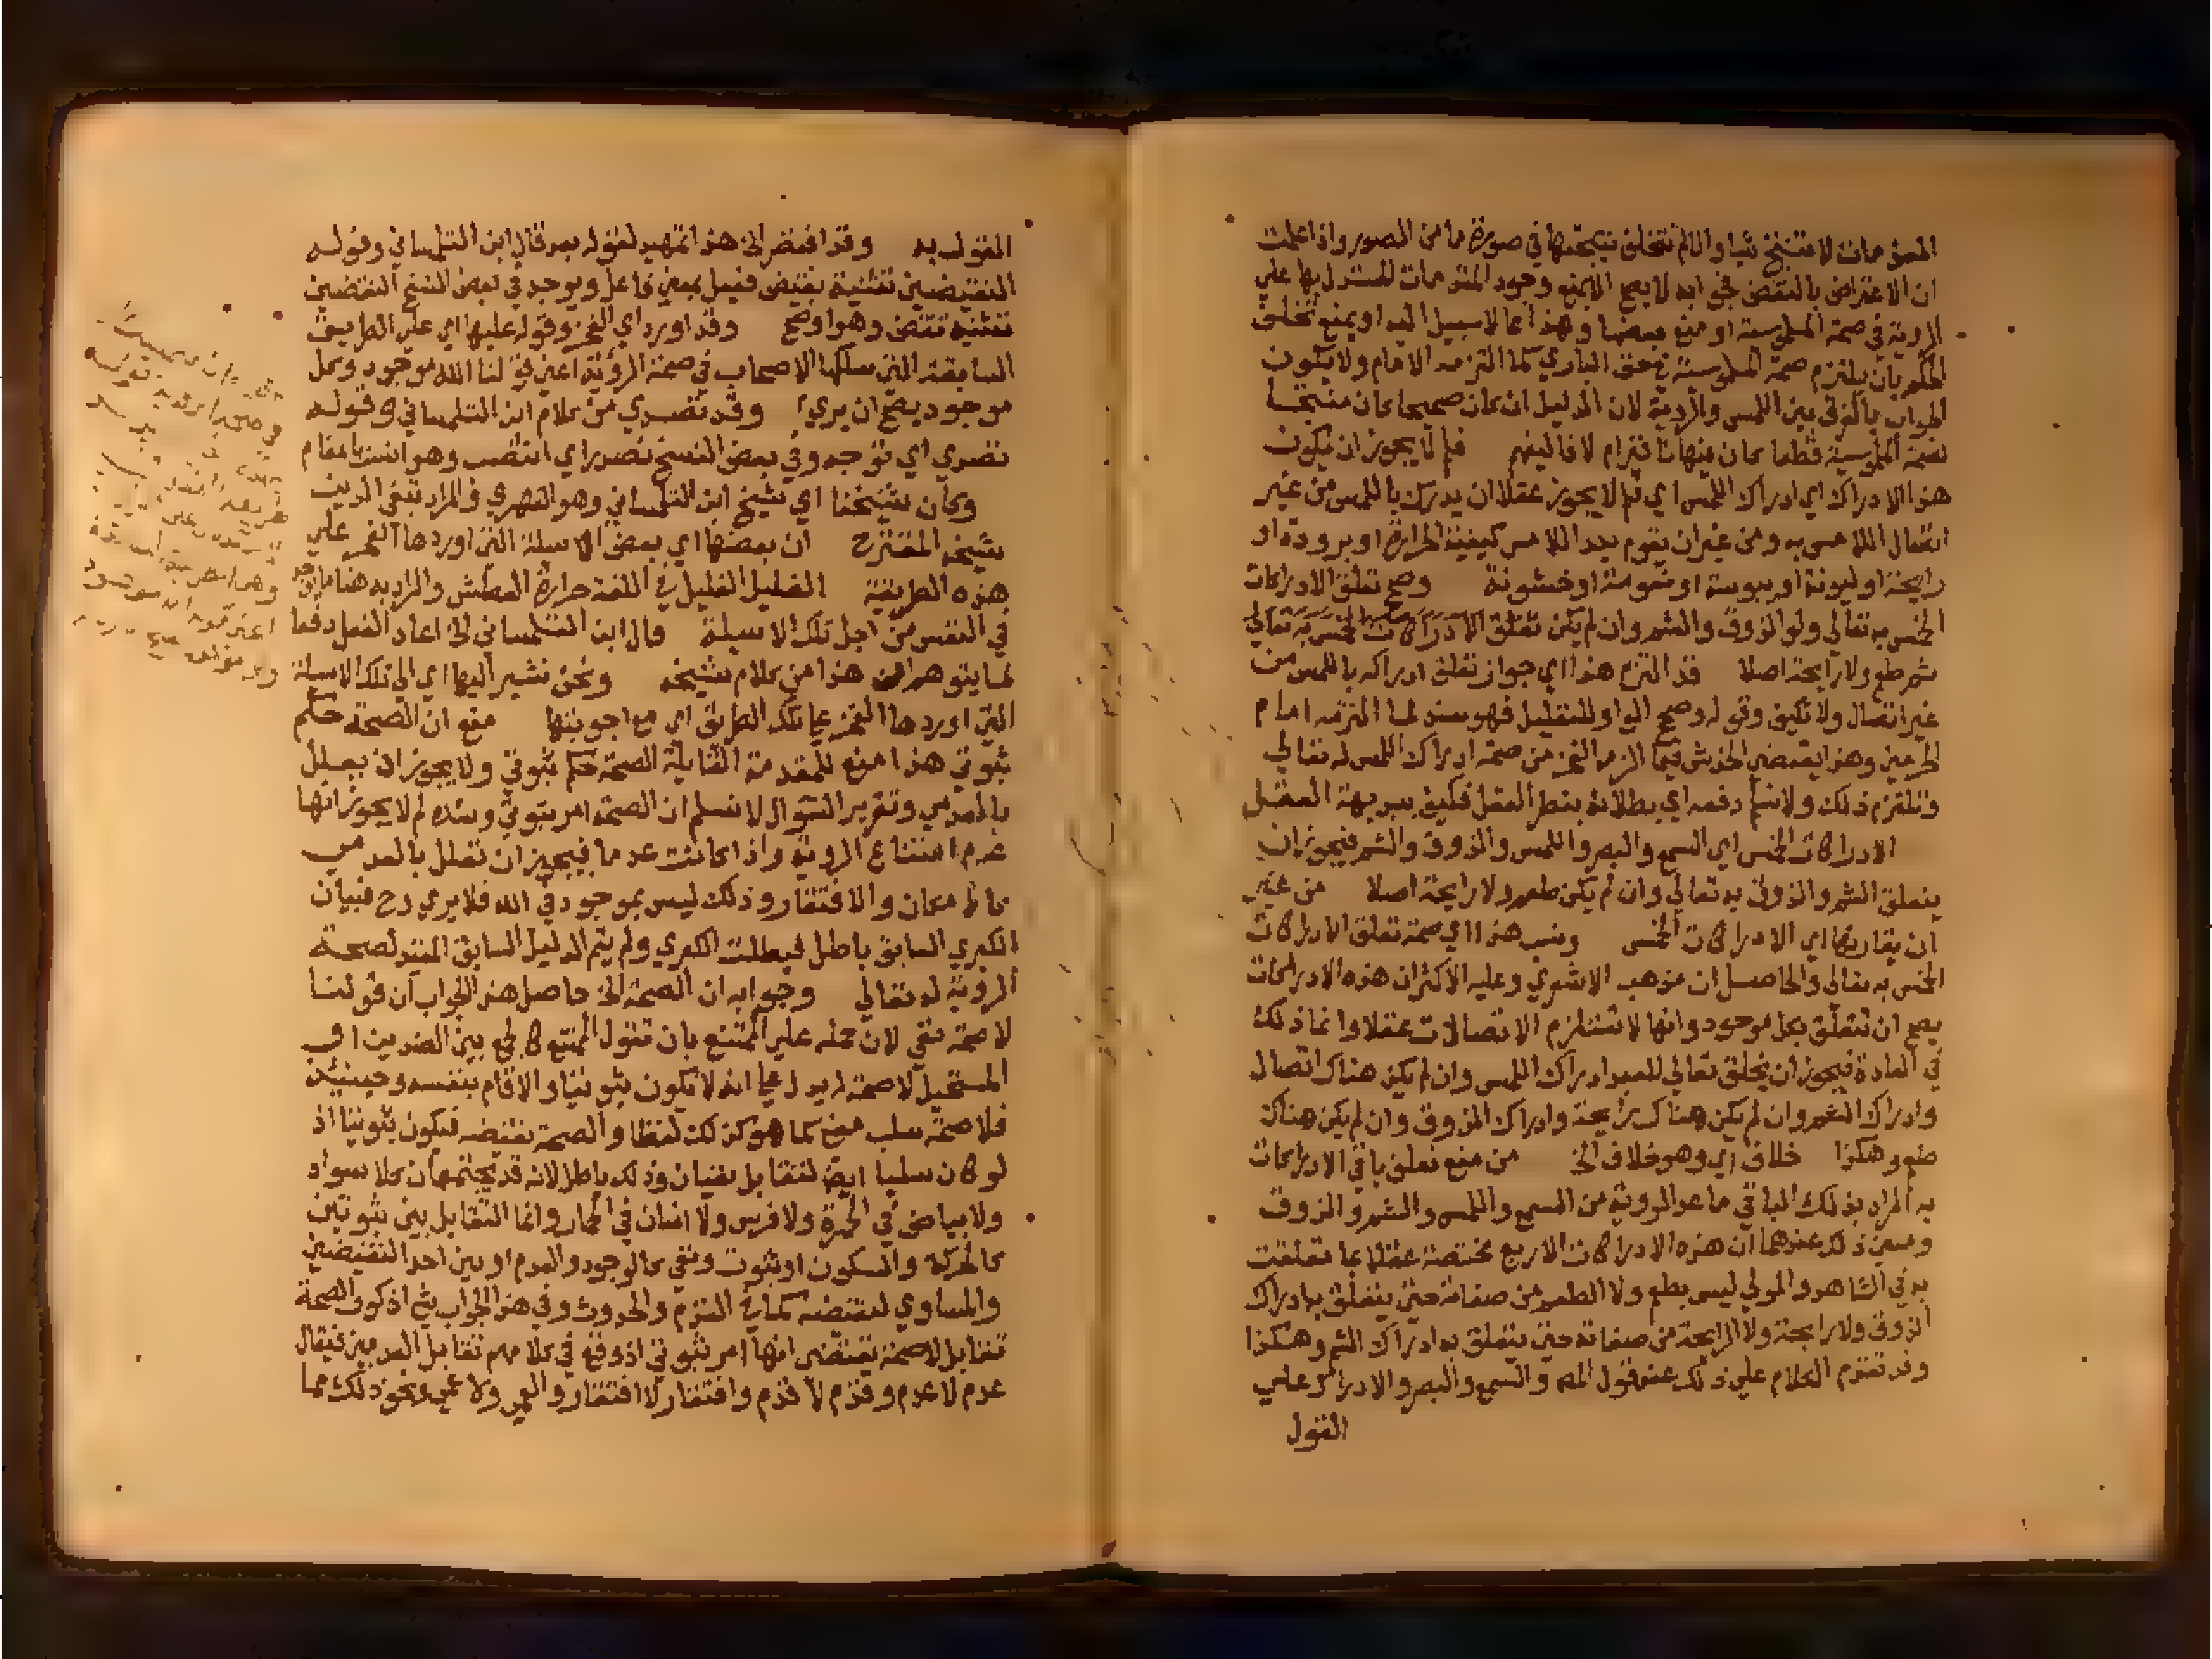 المقدمات لا تنتج شيا والا لم تتخلف نتيجتها في صورة ما من الصور واذا علمت
ان الاعتراض بالنقض الخ ايه لا يصح الا بمنع وجود المقدمات المستدل بها على
الروية في صحة الملموسية او منع بعضها وهذا مما لا سبيل اليه او بمنع تخلف
الحكم بان يلتزم صحة الملموسية في حق الباري كما التزمه الامام ولا يكون
الجواب بالفرق بين اللمس والروية لان الدليل ان كان صحيحا كان منتجا
لصحة الملموسية قطعا فلم لا يجوز ان يكون
هذا الادراك اي ادراك اللمس اي لم لا يجوز عقلا ان يدرك باللمس من غير
اتصال اللامس به ومن غير ان يقوم بيد اللامس كيفية الحرارة او برودة او
رايحة او ليونة او يبوسة او نعومة او خشونة وصح تعلق الادراكات
الخمس به تعالي ولو الذوق والشم وان لم يكن تعلق الادراكات الخمس به تعالي
ثم طعم ولا رايحة اصلا قد التزم هذا اي جواز تعلق ادراكه باللمس من
غير اتصال ولا تكيف وقوله وصح الواو للتعليل فهو سند لما التزمه امام
الحرمين وهذا يقتضي الخدش فيما الزمه الفخر من صحة ادراك اللمس له تعالي
ونلتزم ذلك ولا نسلم دفعه اي بطلانه بنظر العقل فكيف ببديهة العقل
الادراكات الخمس اي السمع والبصر واللمس والذوق والشم فيجوز ان
يتعلق الشم والذوق به تعالي وان لم يكن طعم ولا رايحة اصلا من غير
ان يقارنها اي الادراكات الخمس ونسب هذا اي صحة تعلق الادراكات
الخمس به تعالي والحاصل ان مذهب الاشعري وعليه الاكثر ان هذه الادراكات
يصح ان تتعلق بكل موجود وانها لا تستلزم الاتصالات عقلا وانما ذلك
في العادة فيجوز ان يخلق تعالي للعبد ادراك اللمس وان لم يكن هناك اتصال
وادراك الشم وان لم يكن هناك رايحة وادراك الذوق وان لم يكن هناك
طعم وهكذا خلاف اي وهو خلاف الخ من منع تعلق باقي الادراكات
به المراد بذلك الباقي ما عدا الروية من السمع واللمس والشم والذوق
ومبني ذلك عندهما ان هذه الادراكات الاربع مختصة عقلا بما تعلقت
به في الشاهد والمولي ليس بطعم ولا الطعم من صفاته حتى يتعلق به ادراك
الذوق ولا رايحة ولا الرايحة من صفاته حتى يتعلق به ادراك الشم وهكذا
وقد تقدم الكلام على ذلك عند قول المص والسمع والبصر والادراك على
القول
المقول به وقد افتقر الخ هذا تمهيد لقوله بعد قال ابن التلمساني وقوله
النقيضين تثنية نقيض فعيل بمعني فاعل ويوجد في بعض النسخ النقضين
تثنيه نقض وهو اوضح وقد اورد اي الفخر وقوله عليها اي على الطريق
السابقة التي سلكها الاصحاب في صحة الرؤية اعني قولنا الله موجود وكل
موجود يصح ان يري وقد تصدي من كلام ابن التلمساني وقوله
تصدي اي توجه وفي بعض النسخ تصدر اي انتصب وهو انسب بالمقام
وكان شيخنا اي شيخ ابن التلمساني وهو الفهري والمراد بتقي الدين
شيخه المقترح ان بعضها اي بعض الاسلة التي اوردها الفخر على
هذه الطريقة الغليل الغليل في اللغة حرارة العطش والمراد به هنا ما يوجد
في النفس من اجل تلك الاسيلة قال ابن التلمساني الخ اعاد الفعل دفعا
لما يتوهم ان هذا من كلام شيخه ونحن نشير اليها اي الى تلك الاسيلة
التي اوردها الفخر على تلك الطريق اي مع اجوبتها منع ان الصحة حكم
ثبوتي هذا منع للمقدمة القايلة الصحة حكم ثبوتي ولا يجوز ان يعلل
بالعدمي وتقرير السوال لا نسلم ان الصحة امر ثبوتي وسنده لم لا يجوز انها
عدم امتناع الروية واذا كانت عدما فيجوز ان تعلل بالعدمي
كالامكان والافتقار وذلك ليس بموجود في الله فلا يري وح فبيان
الكبري السابق باطل فبطلت الكبري ولم يتم الدليل السابق المفيد لصحة
الروية له تعالي وجوابه ان الصحة الخ حاصل هذا الجواب ان قولنا
لا صحة نفي لان حمله على الممتنع بان تقول الممتنع كالجمع بين الضدين او
المستحيل لا صحة له يدل على انه لا يكون ثبوتيا والا قام بنفسه وحينيذ
فلا صحة سلب معني كما هو كذلك لفظا والصحة نقيضه فيكون ثبوتيا اذ
لو كان سلبيا ايضا لتقابل نفيان وذلك باطل لانه قد يجتمعان كلا سواد
ولا بياض في الحمرة ولا فرس ولا انسان في الحمار وانما التقابل بين ثبوتين
كالحركة والسكون او ثبوت ونفي كالوجود والعدم او بين احد النقيضين
والمساوي لنقيضه كما في القدم والحدوث وفي هذا الجواب بحث اذ كون الصحة
تقابل لا صحة يقتضي انها امر ثبوتي اذ وقع في كلامهم تقابل العدميين فيقال
عدم لا عدم وقدم لا قدم وافتقار لا افتقار والعمي ولا عمي ونحو ذلك مما